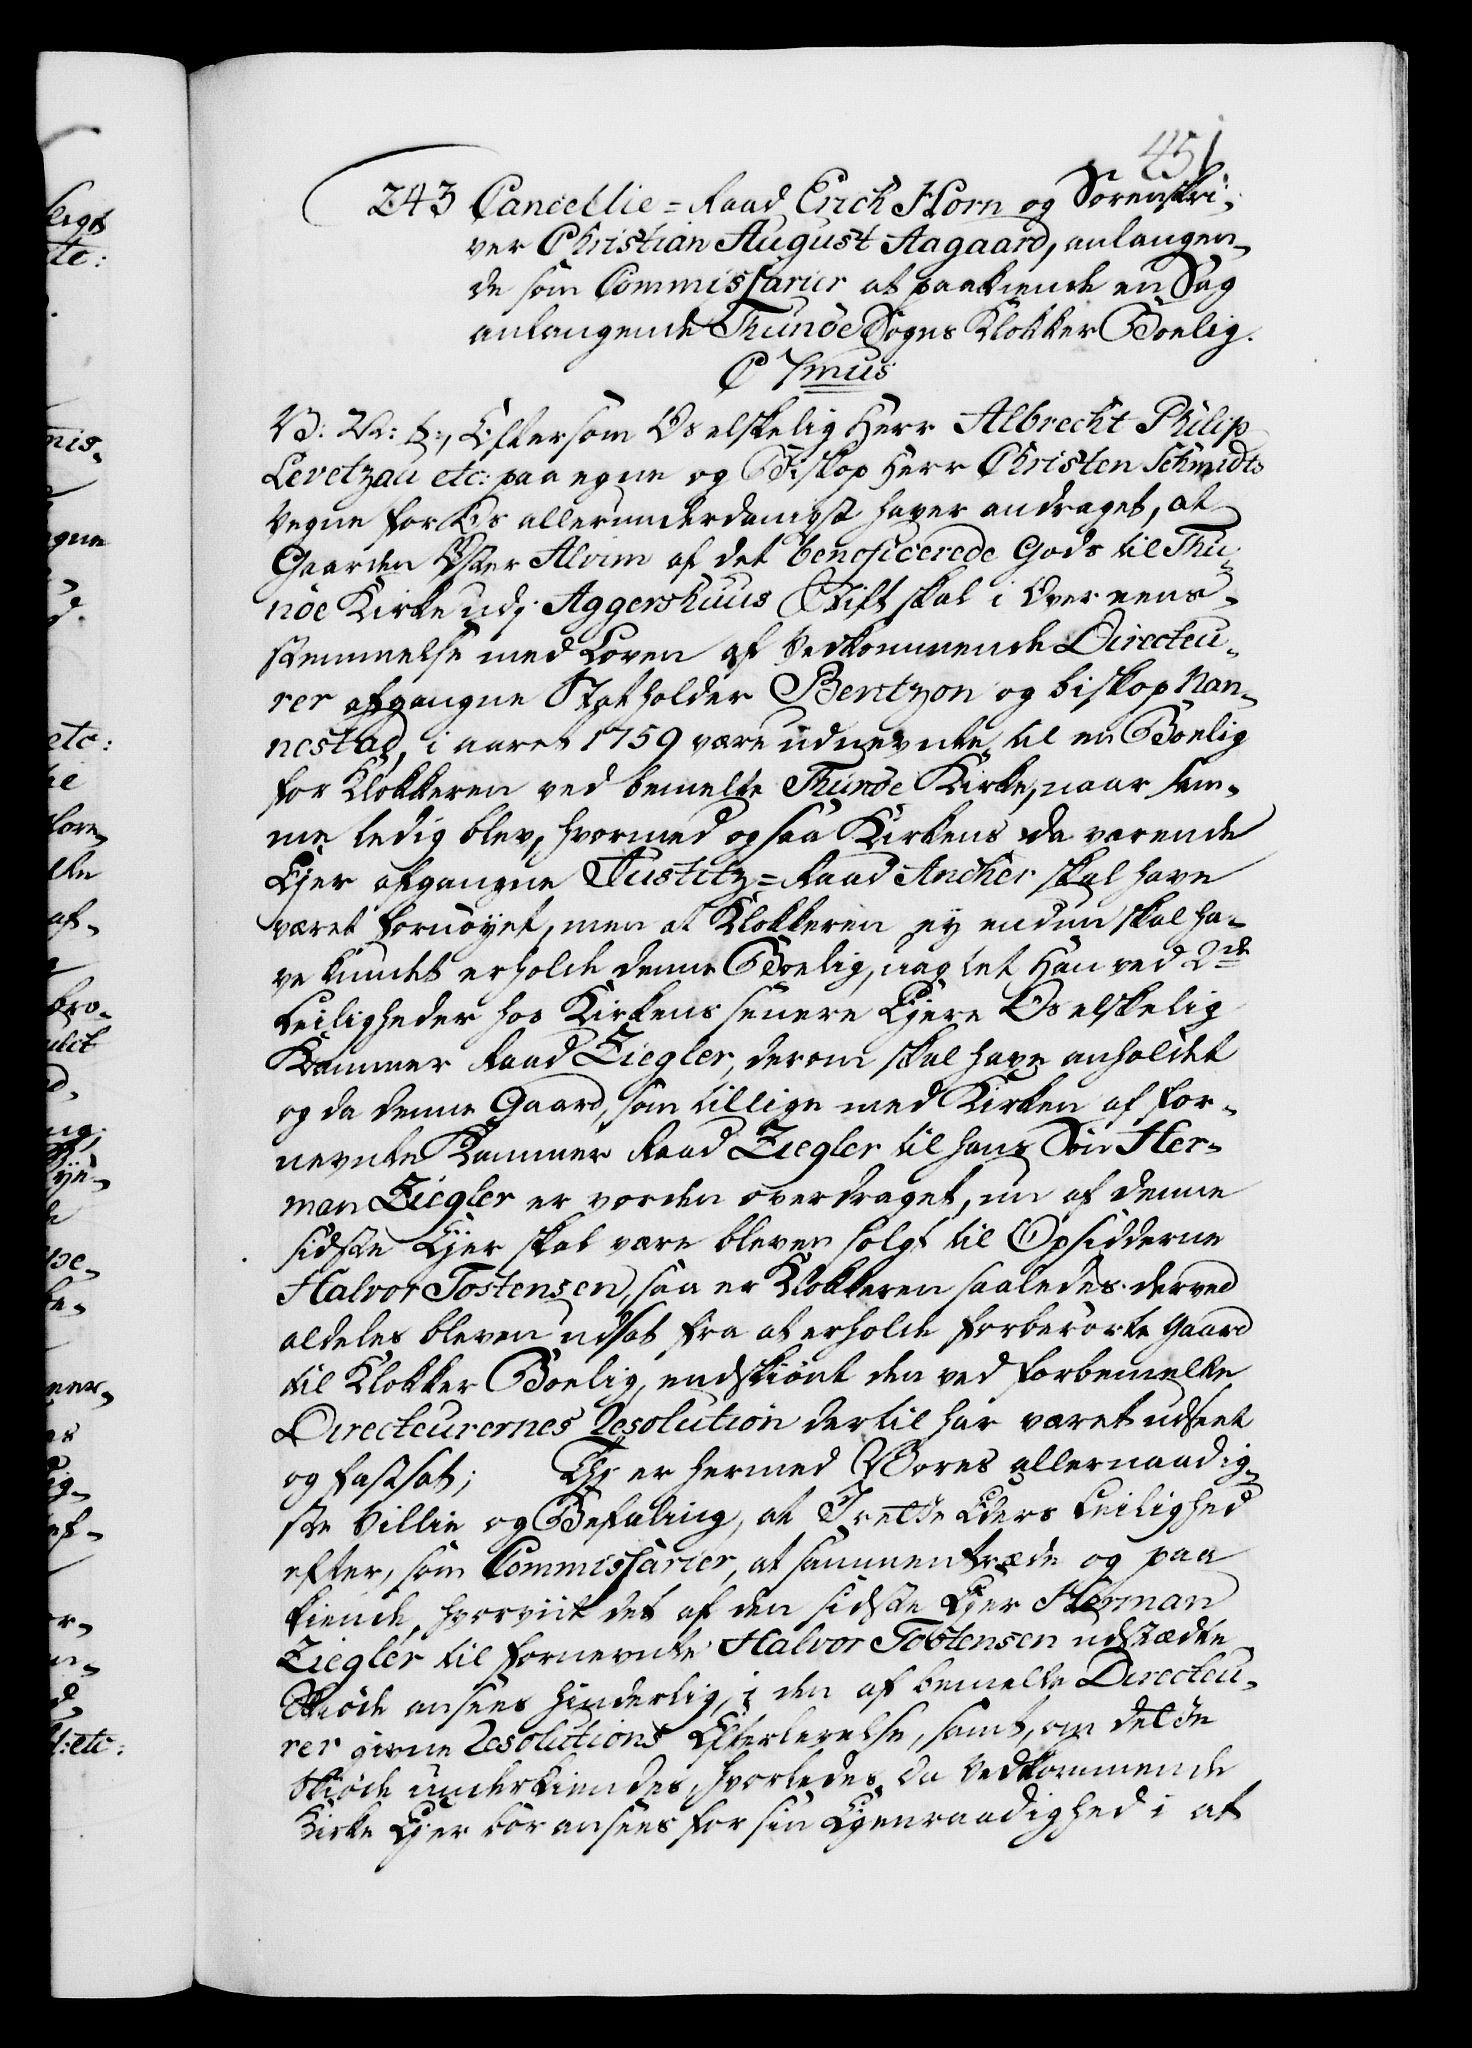 451
243 Cancellie=Raad Erich Horn og Sorenskri-
ver Christian August Aagaard, anlangen-
de som Commissarier at paakiende en Sag
anlangende Thunöe Sogns Klokker Boelig.
C 7mus
V: V: t:, Eftersom Os elskelig Herr Albrecht Philip
Levetzau etc: paa egne og Biskop Herr Christen Schmidts
Vegne for Os allerunderdanigst haver andraget, at
Gaarden Öster Alvim af det beneficerede Gods til Thu-
nöe Kirke udj Aggershuus Stift skal i Overeens-
stemmelse med Loven af Vedkommende Directeu-
rer afgangne Statholder Bentzon og biskop Nan-
nestad, i aaret 1759 være udnevnte til en Boelig
for Klokkeren ved bemelte Thunöe Kirke, naar sam-
me ledig blev, hvormed ogsaa Kirkens da værende
Ejer afgangne Justitz=Raad Ancher skal have
været fornöyet, men at Klokkeren ey endnu skal ha-
ve kundet erholde denne Boelig, uagtet Han ved 2de
Leiligheder hos Kirkens senere Ejere Os elskelig
Kammer Raad Ziegler, derom skal have anholdet
og da denne Gaard, som tillige med Kirken af for-
nevnte Kammer Raad Ziegler til hans Sön Her-
man Ziegler er vorden overdraget, nu af denne
sidste Ejer skal være bleven solgt til Opsidderne
Halvor Tostensen, saa er Klokkeren saaledes derved
aldeles bleven udsat fra at erholde forberörte Gaard
til Klokker Boelig, endskiönt den ved forbemelte
Directeurernes Resolution dertil har været udseet
og fastsat; Thj er hermed Vores allernaadig-
ste Villie og Befaling, at I rette Eders Leilighed
efter, som Commissarier, at sammentræde og paa
kiende, hvorviit det af den sidste Ejer Herman
Ziegler til fornevnte Halvor Tostensen udstædte
Skiöde ansees hinderlig i den af bemelte Directeu-
rer givne Resolutions Efterlevelse, samt, om dette
Skiöde underkiendes, hvorledes da Vedkommende
Kirke Ejer bör ansees for sin Egenraadighed i at